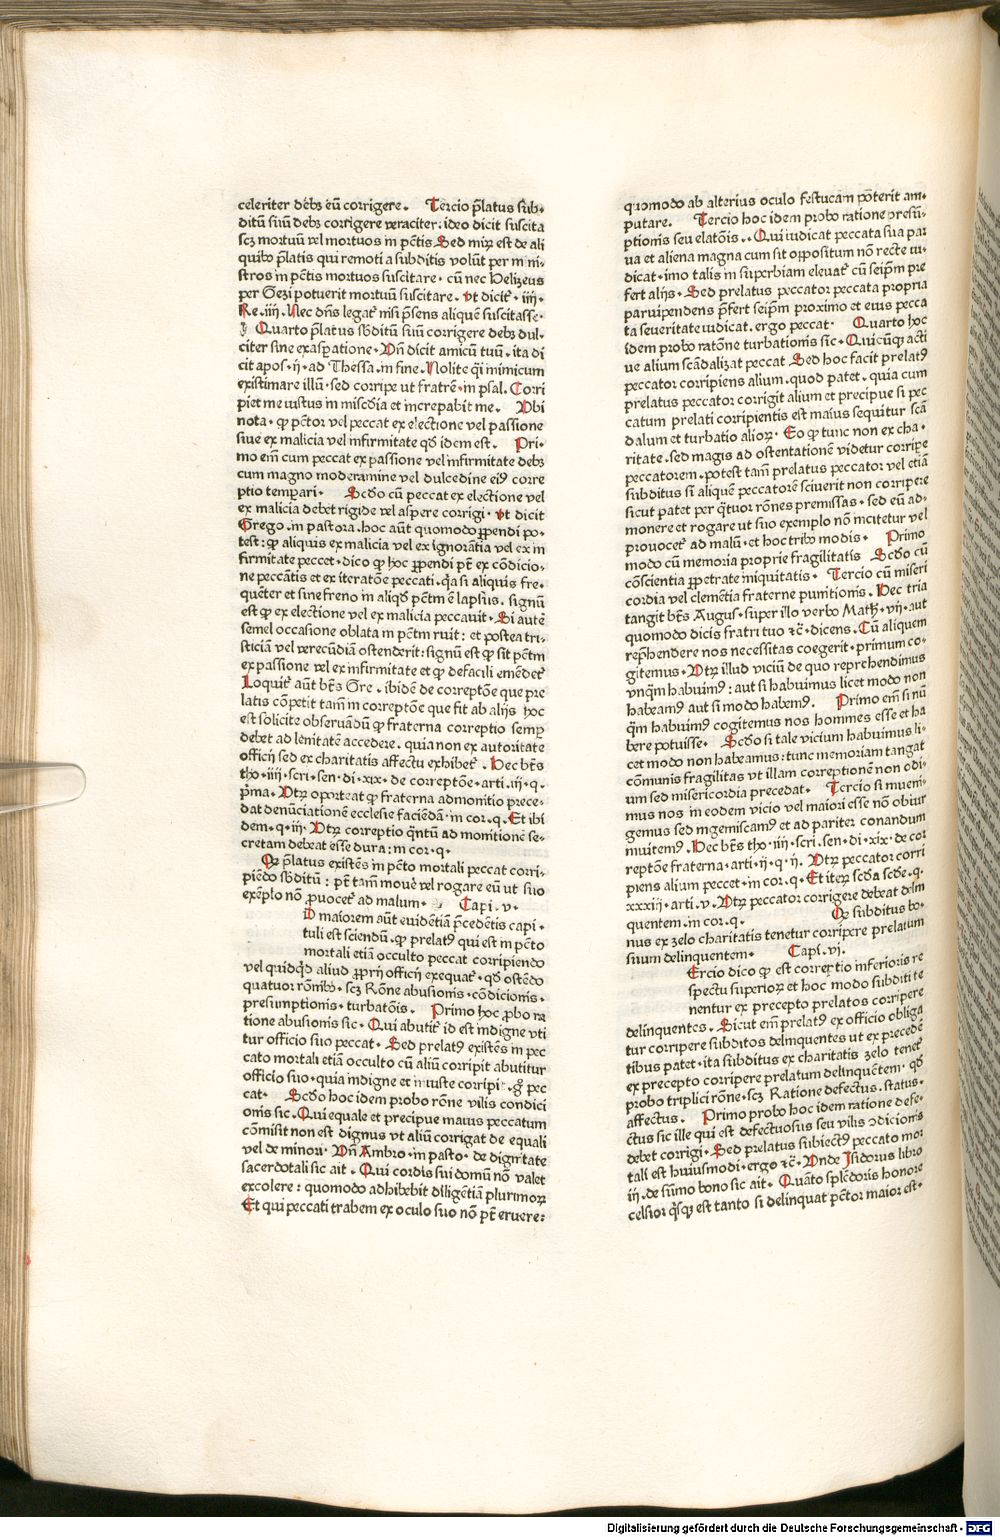 celeriter debꝫ eū corrigere. Tercio p̄latus sub-
ditū suū debꝫ corrigere veraciter: ideo dicit suscita
scꝫ mortuū vel mortuos in pc̄tis Sed miꝝ est de ali
quibꝰ p̄latis qui remoti a subditis volūt per mini
stros in pc̄tis mortuos suscitare. cū nec Helizeus
per Gezi potuerit mortuū suscitare. vt dicit̄. iiij.
Re. iiij. Nec dn̄s legat̄ nisi p̄sens aliquē suscitasse.
Quarto p̄latus sb̄ditū suū corrigere debꝫ dul-
citer sine exasꝑatione. Vn̄ dicit amicū tuū. ita di
cit apos. ij. ad Thessa. in fine. Nolite q̄i inimicum
existimare illū. sed corripe ut fratrē. in psal. Corri
piet me iustus in mīscd̄ia et increpabit me. Vbi
nota. ꝙ pc̄tor vel peccat ex electione vel passione
siue ex malicia vel infirmitate qd̄ idem est. Pri-
mo em̄ cum peccat ex passione vel infirmitate debꝫ
cum magno moderamine vel dulcedine eiꝰ corre
ptio temꝑari. Scd̄o cū peccat ex electione vel
ex malicia debet rigide vel aspere corrigi. vt dicit
Grego. in pastora. hoc aūt quomodo ꝑpendi po-
test: ꝙ aliquis ex malicia vel ex ignorātia vel ex in
firmitate peccet. dico ꝙ hoc ꝑpendi pt̄ ex cōdicio-
ne peccātis et ex iteratōe peccati. qͣa si aliquis fre-
quēter et sine freno in aliqd̄ pc̄tm ē lapsus. signū
est ꝙ ex electione vel ex malicia peccauit. Si autē
semel occasione oblata in pc̄tm ruit: et postea tri-
sticiā vel verecūdiā ostenderit: signū est ꝙ sit pc̄tm
ex passione vel ex infirmitate et ꝙ defacili emēdet̄
Loquit̄ aūt bt̄s Gre. ibidē de correptōe que pre
latis cōpetit tam̄ in correptōe que fit ab alijs hoc
est solicite obseruādū ꝙ fraterna correptio semꝑ
debet ad lenitatē accedere. quia non ex autoritate
officij sed ex charitatis affectu exhibet̄. Hec bt̄s
tho. iiij. scri. sen. di. xix. de correptōe. arti. iij. q.
p̄ma. Vtꝝ oporteat ꝙ fraterna admonitio prece-
dat denūciationē ecclesie faciēdā. in cor. q. Et ibi
dem. q. iij. Vtꝝ correptio qͣntū ad monitionē se-
cretam debeat esse dura: in cor. q.
Qꝝ p̄latus existēs in pc̄to mortali peccat corri-
piēdo sb̄ditū: pt̄ tam̄ mouē vel rogare eū ut suo
exēplo nō ꝓuocet̄ ad malum. Capi. v.
D maiorem aūt euidētiā p̄cedētis capi.
tuli est sciendū. ꝙ prelatꝰ qui est in pc̄to
mortali etiā occulto peccat corripiendo
vel quidqd̄ aliud ꝓprij officij exequat̄. qd̄ ostēdo
quatuor rōnibꝰ. scꝫ Rōne abusionis. cōdicionis.
presumptionis. turbatōis. Primo hoc ꝓbo ra
tione abusionis sic. Qui abutit̄ id est indigne vti
tur officio suo peccat. Sed prelatꝰ existēs in pec
cato mortali etiā occulto cū aliū corripit abutitur
officio suo. quia indigne et iniuste corripi. gͦ pec
cat. Scd̄o hoc idem probo rōne vilis condici
onis sic. Qui equale et precipue maius peccatum
cōmisit non est dignus vt aliū corrigat de equali
vel de minori. Vn̄ Ambro. in pasto. de dignitate
sacerdotali sic ait. Qui cordis sui domū nō valet
excolere: quomodo adhibebit diligētiā plurimoꝝ
Et qui peccati trabem ex oculo suo nō pt̄ eruere:
quomodo ab alterius oculo festucam poterit am-
putare. Tercio hoc idem probo ratione presū-
ptionis seu elatōis.. Qui iudicat peccata sua par
ua et aliena magna cum sit oppositum nō recte iu-
dicat. imo talis in superbiam eleuat̄ cū seipm̄ pre
fert alijs. Sed prelatus peccator peccata propria
paruipendens p̄fert seipm̄ proximo et eius pecca
ta seueritate iudicat. ergo peccat. Quarto hoc
idem probo ratōne turbationis sic. Quicūqꝫ acti
ue alium scādalizat peccat Sed hoc facit prelatꝰ
peccator corripiens alium. quod patet. quia cum
prelatus peccator corrigit alium et precipue si pec
catum prelati corripientis est maius sequitur scā
dalum et turbatio alioꝝ. Eo ꝙ tunc non ex cha-
ritate. sed magis ad ostentationē videtur corriꝑe
peccatorem. potest tam̄ prelatus peccator vel etiā
subditus si aliquē peccatorē sciuerit non corripere
sicut patet per qͣtuor rōnes premissas. sed eū ad-
monere et rogare ut suo exemplo nō incitetur vel
prouocet̄ ad malū. et hoc tribꝰ modis. Primo
modo cū memoria proprie fragilitatis Scd̄o cū
cōscientia ꝑpetrate iniquitatis. Tercio cū miseri
cordia vel clemētia fraterne punitionis. Hec tria
tangit bt̄s Augus. super illo verbo Math̄. vij. aut
quomodo dicis fratri tuo ⁊c̄. dicens. Cū aliquem
rep̄hendere nos necessitas coegerit. primum co-
gitemus. Vtꝝ illud viciū de quo reprehendimus
vnqͣm habuimꝰ: aut si habuimus licet modo non
habeamꝰ aut si modo habemꝰ. Primo em̄ si nū
qͣm habuimꝰ cogitemus nos hommes esse et ha
bere potuisse. Scd̄o si tale vicium habuimus li-
cet modo non habeamus: tunc memoriam tangat
cōmunis fragilitas vt illam correptionē non odi-
um sed misericordia precedat. Tercio si inueni-
mus nos in eodem vicio vel maiori esse nō obiur
gemus sed ingemiscamꝰ et ad pariter conandum
inuitemꝰ. Hec bt̄s tho. iiij. scri. sen. di. xix. de cor
reptōe fraterna. arti. ij. q. ij. Vtꝝ peccator corri
piens alium peccet. in cor. q. Et iteꝝ scd̄a scd̄e. q.
xxxiij. arti. v. Vtꝝ peccator corrigere debeat delin
quentem. in cor. q. Qꝝ subditus bo-
nus ex zelo charitatis tenetur corripere prelatum
suum delinquentem. Capi. vi.
Ercio dico ꝙ est correptio inferioris re
spectu superioꝝ et hoc modo subditi te
nentur ex precepto prelatos corripere
delinquentes. Sicut em̄ prelatꝰ ex officio obliga
tur corripere subditos delinquentes ut ex precedē
tibus patet. ita subditus ex charitatis zelo tenet̄
ex precepto corripere prelatum delinquētem. qd̄
probo triplici rōne. scꝫ Ratione defectus. status.
affectus. Primo probo hoc idem ratione defe-
ctus sic ille qui est defectuosus seu vilis ↄdicionis
debet corrigi. Sed prelatus subiectꝰ peccato mor
tali est huiusmodi. ergo ⁊c̄. Vnde Isidorus libro
iij. de sūmo bono sic ait. Quāto splēdoris honore
celsior qͥsqꝫ est tanto si delinquat pc̄tor maior est.
Digitalisierung gefördert durch die Deutsche Forschungsgemeinschaft - DFG